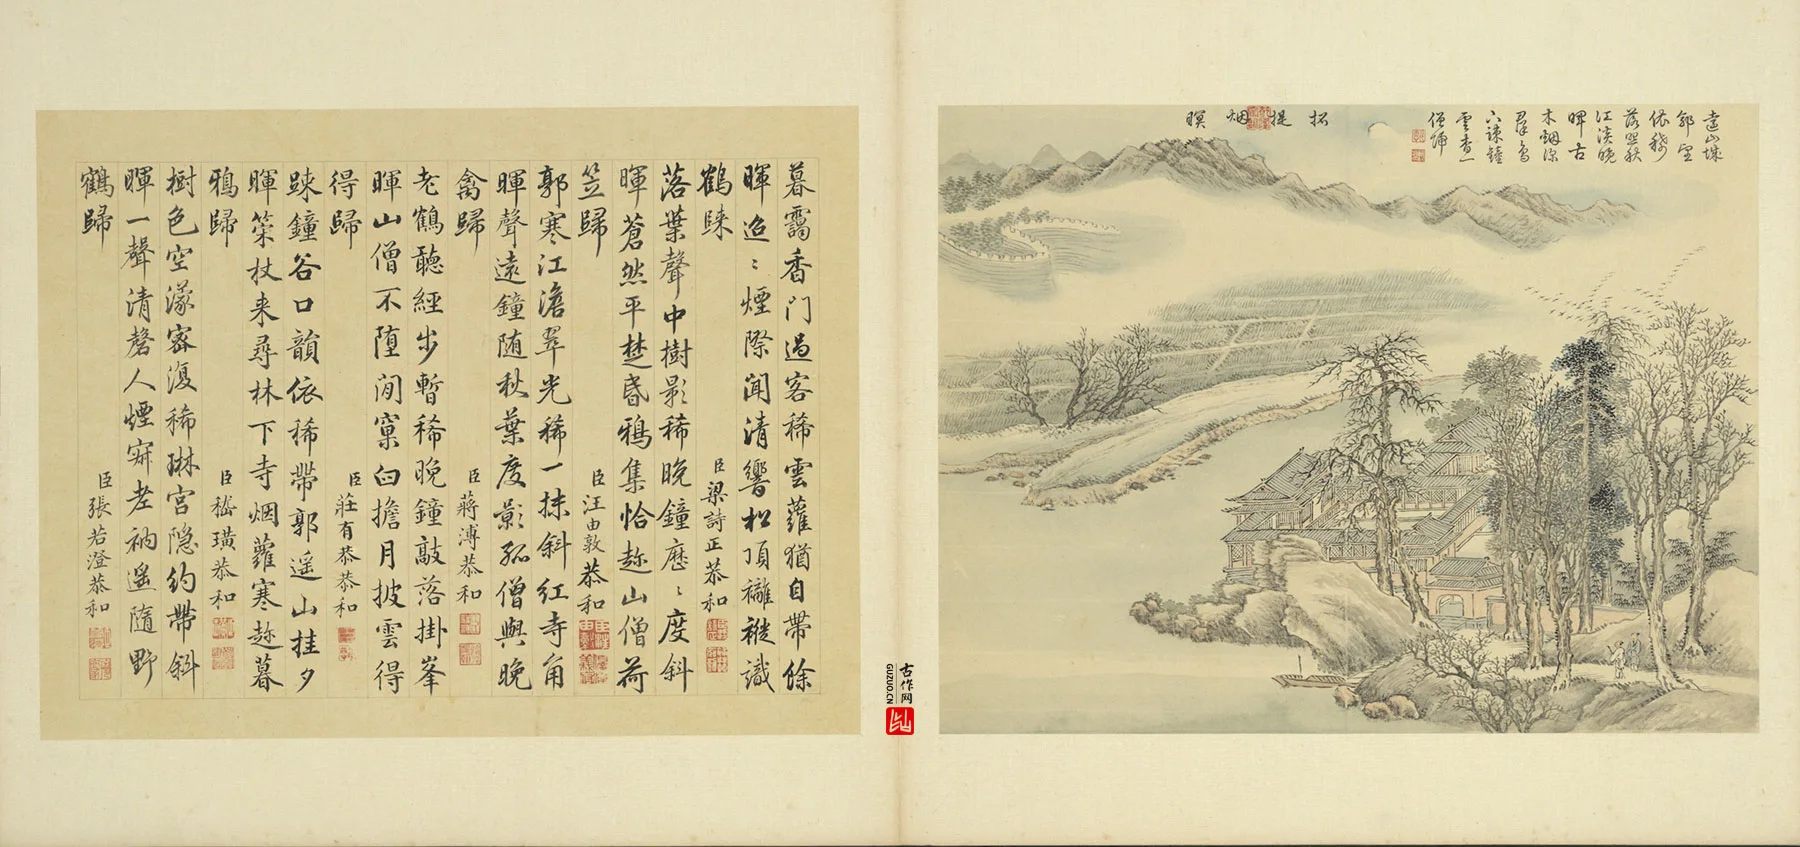 遠山城
郭望
依稀
落照秋
江淡晚
暉古
木烟深
羣鳥
下疎鐘
雲杳一
僧歸
招提烟暝
暮靄香門過客稀雲蘿猶自帶餘
暉迢〻煙際聞清響松頂䙰褷識
鶴歸 臣梁詩正恭和
落葉聲中樹影稀晚鐘歷〻度斜
暉蒼然平楚昏鴉集恰趂山僧荷
笠歸 臣汪由敦恭和
郭寒江澹翠光稀一抹斜紅寺角
暉聲遠鐘随秋葉度影孤僧與晚
禽歸 臣蔣溥恭和
老鶴聽經步暫稀晚鐘敲落掛峯
暉山僧不墮閒窠臼擔月披雲得
得歸 臣莊有恭恭和
踈鐘谷口韻依稀帶郭遥山挂夕
暉策杖来尋林下寺烟蘿寒趂暮
鴉歸 臣嵇璜恭和
樹色空濛密復稀琳宮隱約帶斜
暉一聲清磬人煙寂老衲遥隨野
鶴歸 臣張若澄恭和
古作网
GUZUO.CN